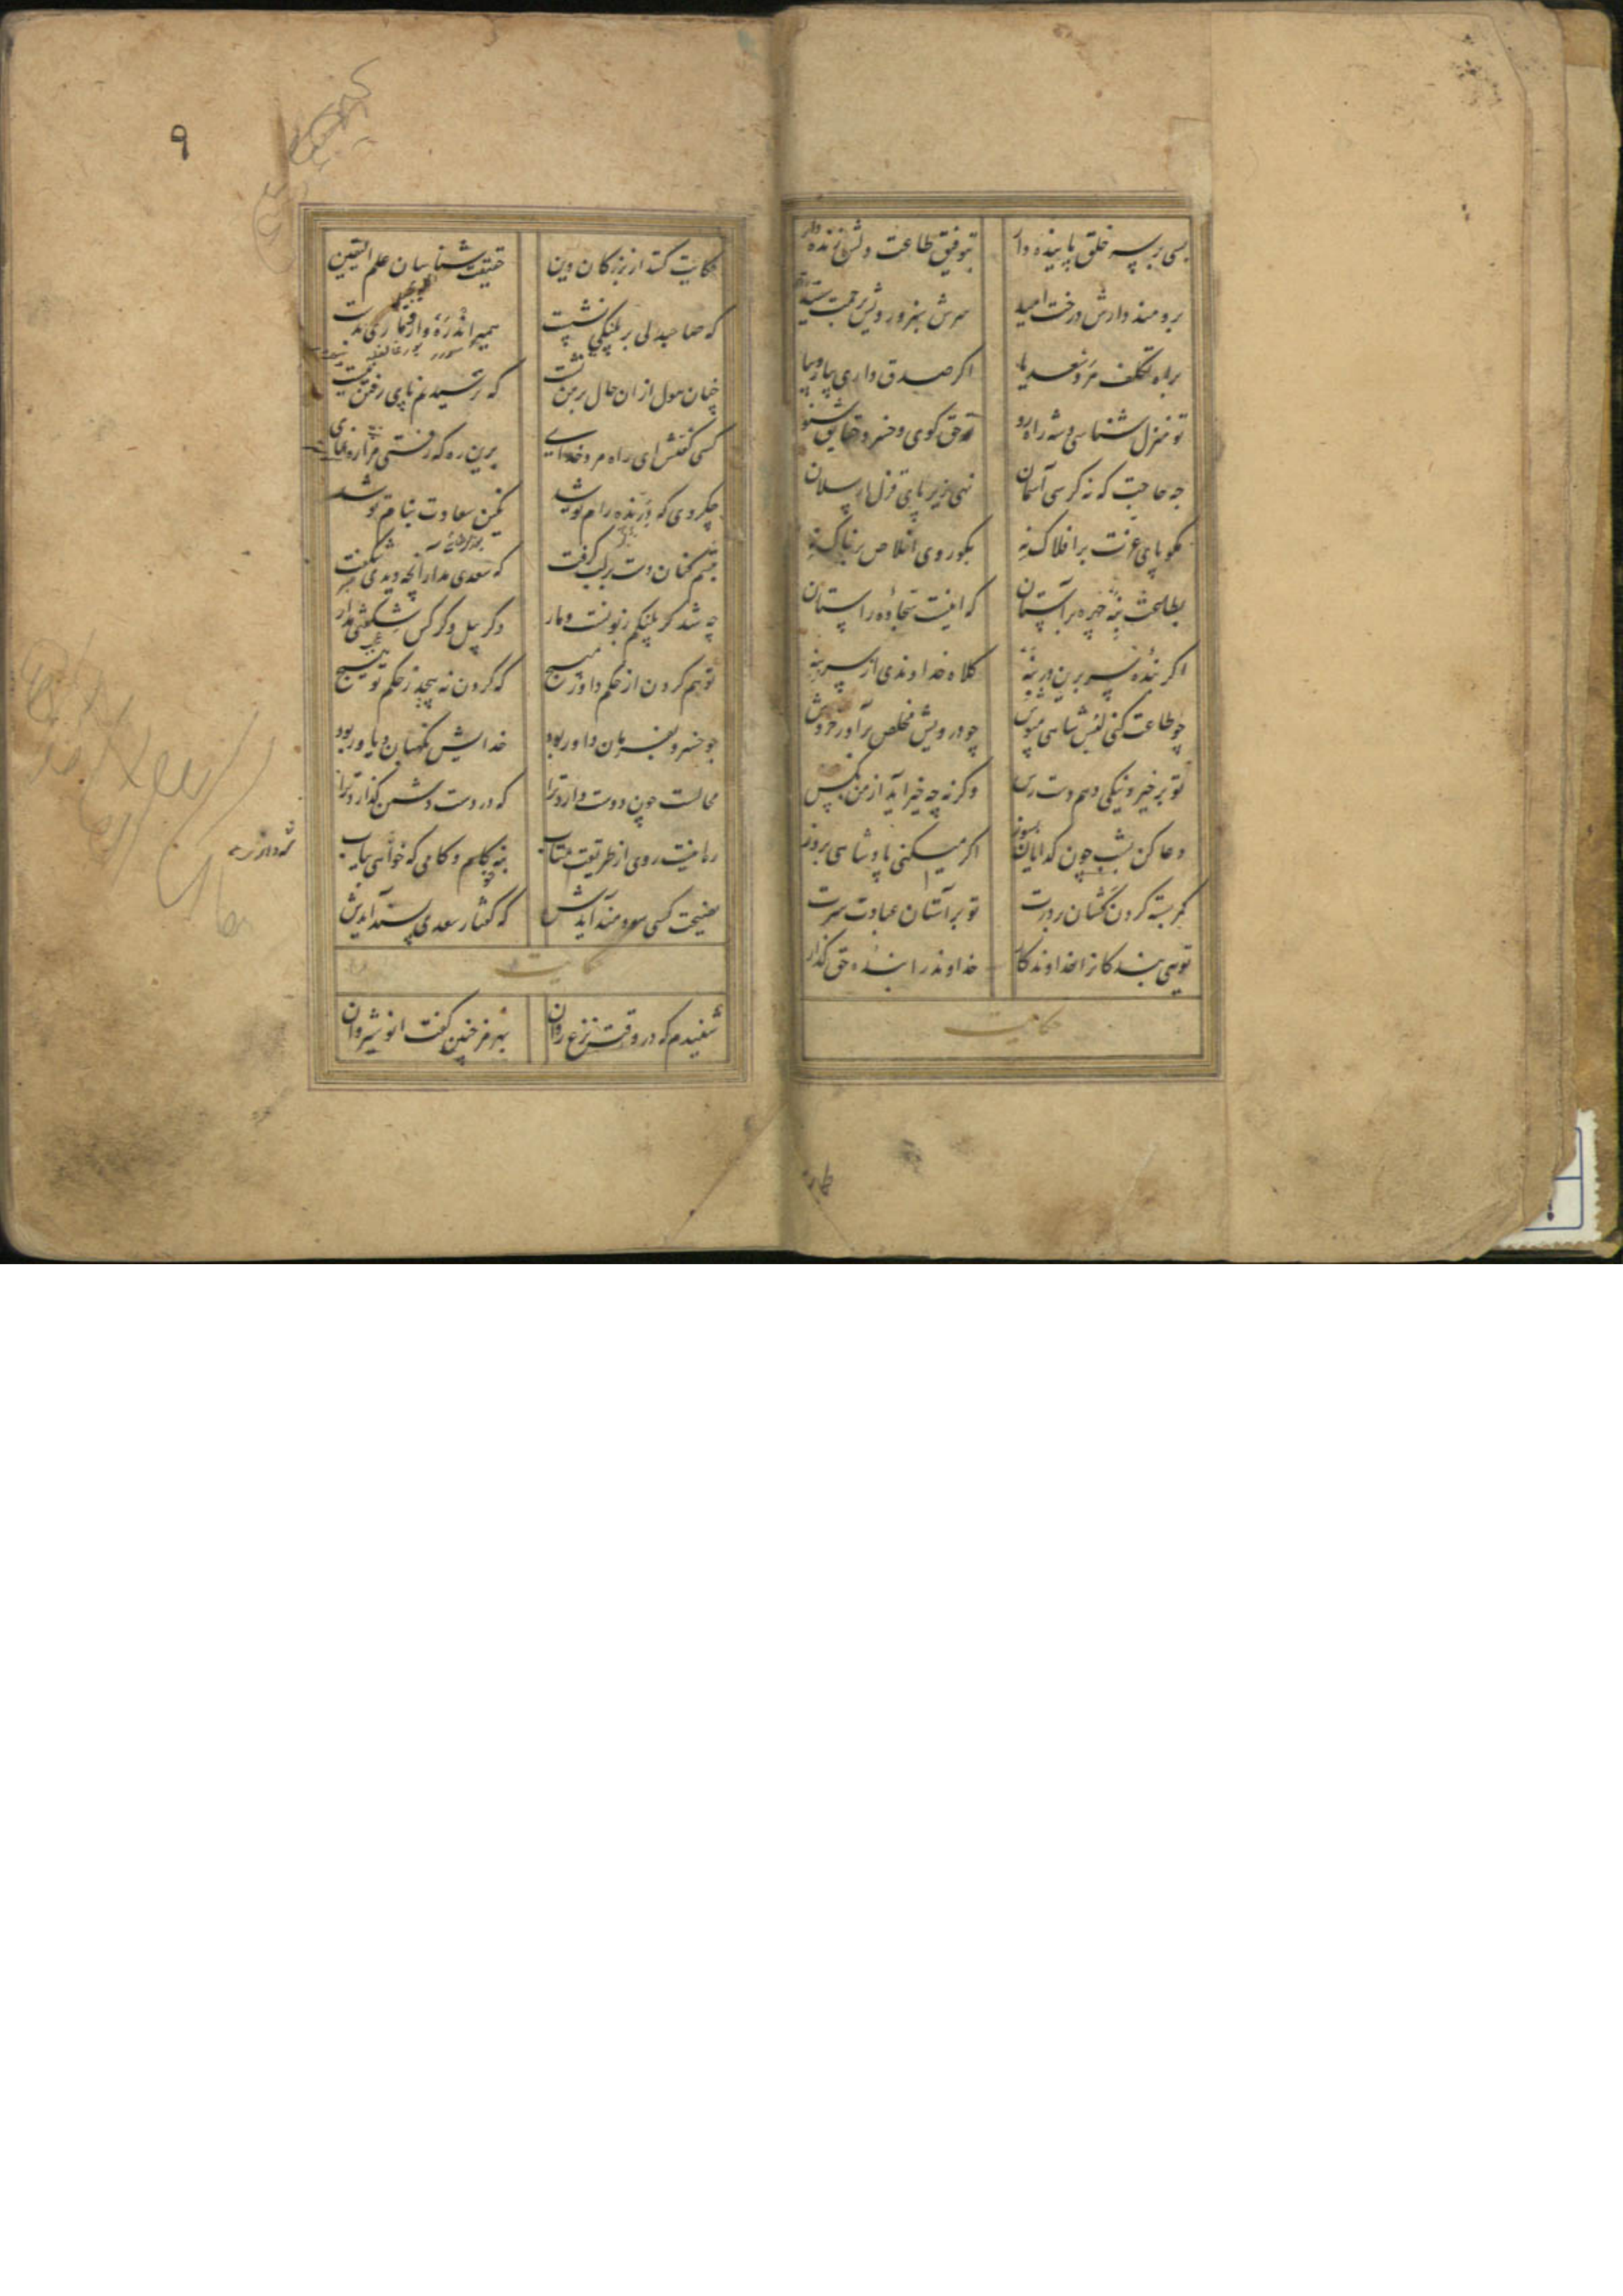 بسی بر سر خلق پاینده دار بتوفیق طاعت دلش زنده دار
برومند دارش درخت امید سرش سبز و رویش برحمت سپید
براه تکلف مرو سعدیا اکر صدق داری بیار و بیا
تو منزل شناسی و شه راه رو تو حق کوی و خسرو حقایق شنو
چه حاجت که نه کرسی آسمان نهی زیر پای قزل ارسلان
مکو پای عزت بر افلاک نه بکو روی اخلاص بر خاک نه
بطاعت بنه چهره بر آستان که اینست سجاده راستان
اکر بنده سر برین در بنه کلاه خداوندی از سر بنه
چو طاعت کنی لبس شاهی مپوش چو درویش مخلص برآور خروش
تو بر خیر و نیکی دهم دست رس وکرنه چه خیر آید از من بکس
دعا کن بشب چون کدایان بسوز اکر میکنی پادشاهی بروز
کمر بسته کردن کشان بر درت تو بر آستان عبادت سرت
زهی بندکانرا خداوندکار خداوند را بنده حق کذار
حکایت
۹
حکایت کنند از بزرکان دین حقیقت شناسان علم الیقین
که صاحبدلی بر پلنکی نشست همی راند رهوار و ماری بدست
چنان هول از ان حال بر من نشست که ترسیدنم پای رفتن ببست
کسی کفتش ای راه مرد خدای برین ره که رفتی مرا ره نمای
چه کردی که درنده رام تو شد نکین سعادت بنام تو شد
تبسم کنان دست بر لب کرفت که سعدی مدار آنچه دیدی شکفت
چه شد کر پلنکم زبونست و مار وکر پیل و کرکس شکفتی مدار
تو هم کردن از حکم داور مپیچ که کردن نه پیچد ز حکم تو هیچ
چو خسرو بفرمان داور بود خدایش نکهبان و یاور بود
محالست چون دوست دارد ترا که در دست دشمن کذارد ترا
ره اینست روی از طریقت متاب بنه کام و کامی که خواهی بیاب
نصیحت کسی سودمند آیدش که کفتار سعدی پسند آیدش
حکایت
شنیدم که در وقت نزع روان بهرمز چنین کفت انوشیروان